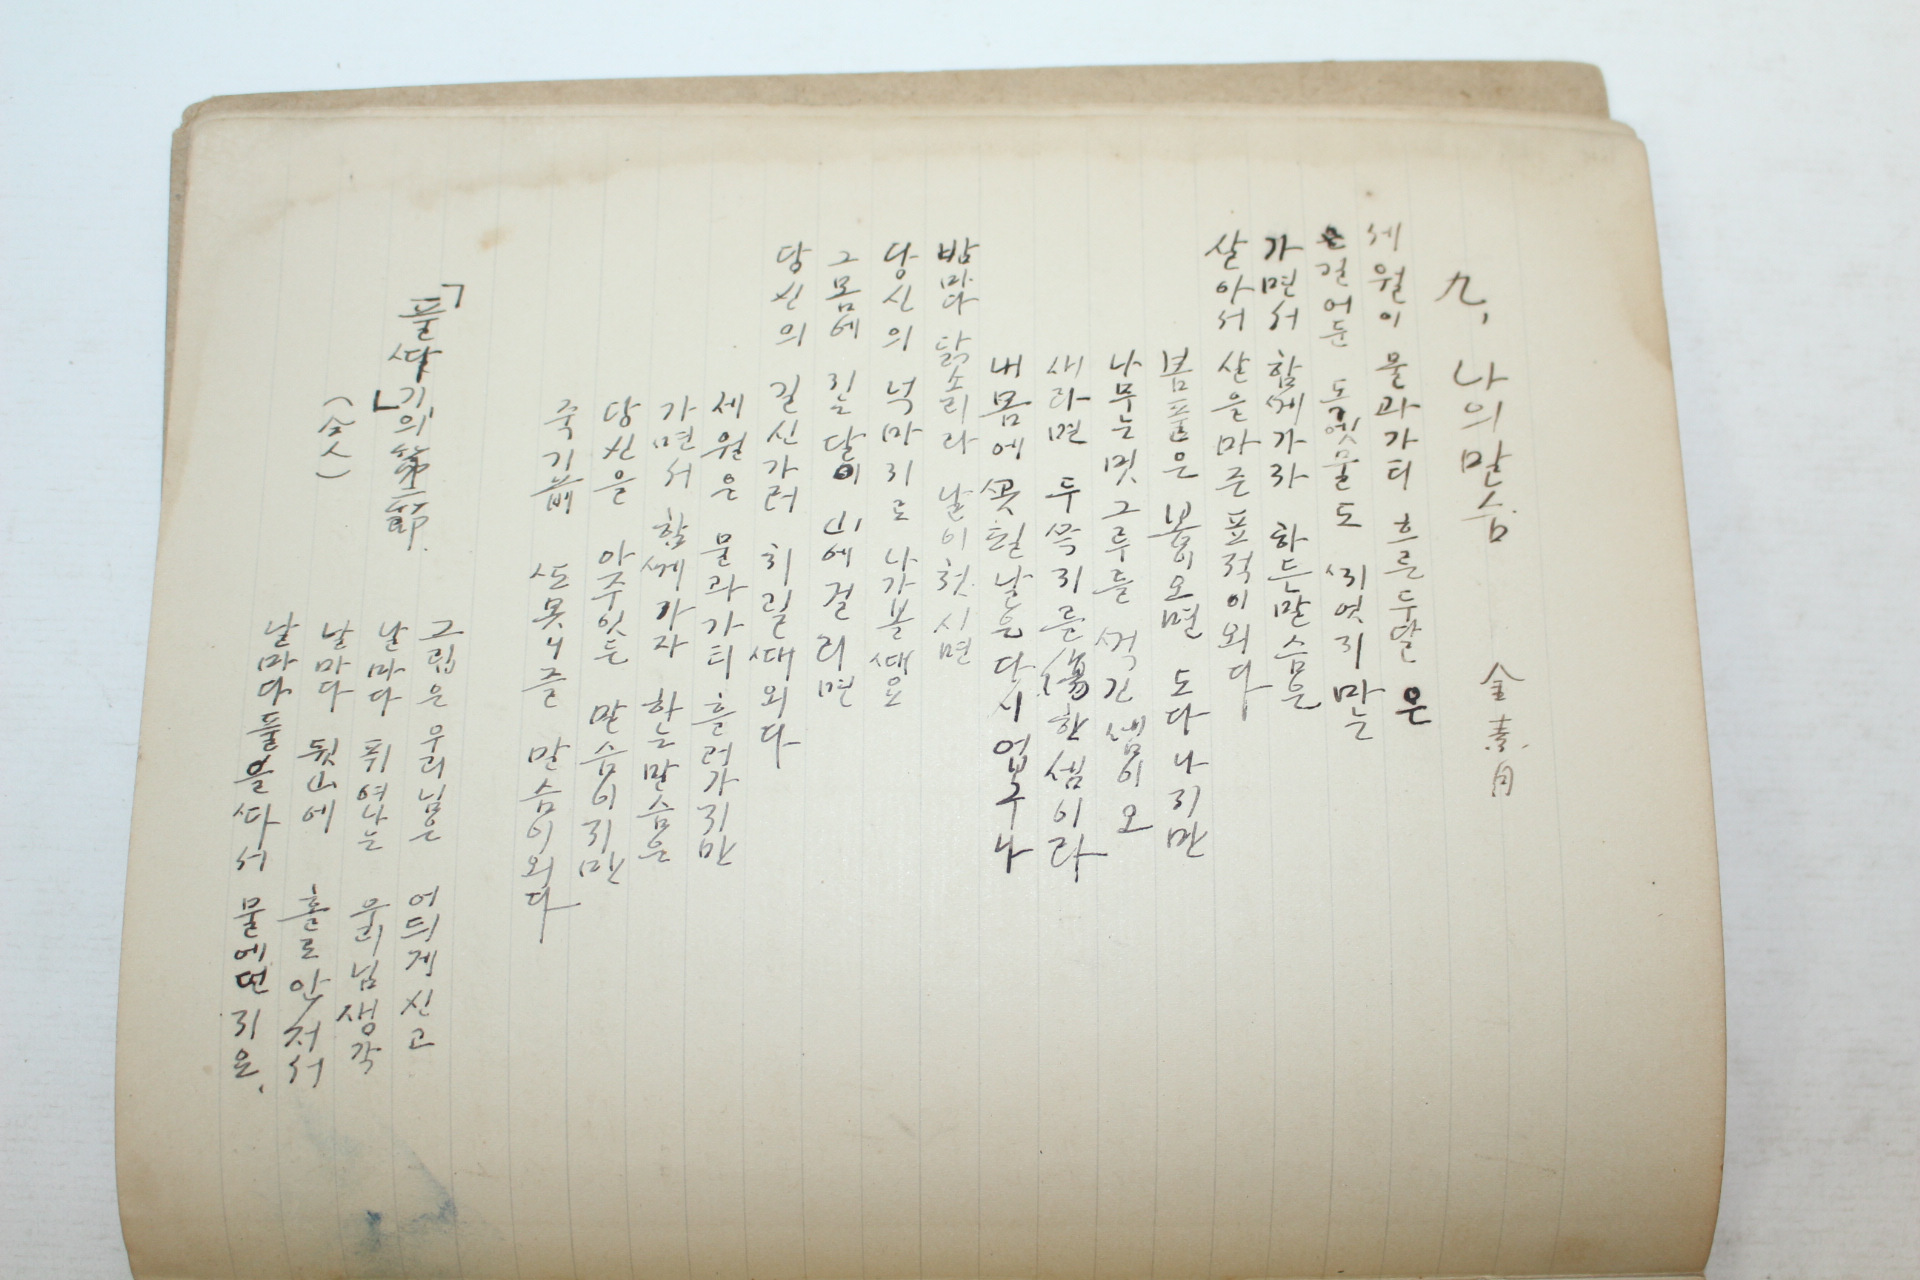 九, 나의말슴 金素月
세월이 물과가티 흐른두달은
길어둔 독엣물도 찌엿지마는
가면서 함께가자 하든말슴은
살아서 살을마즌표적이외다
봄풀은 봄이오면 도다나지만
나무는밋그루를 꺽근셈이오
새라면 두쭉지를傷한셈이라
내몸에 꼿필날은다시업구나
밤마다 닭소리라 날이첫시면
당신의 넉마지로 나가볼때요
그몸에 지는달이 山에걸리면
당신의 길신가러 치릴때외다
세월은 물과가티흘러가지만
가면서 함께가자 하는말슴은
당신을 아주잇든 말슴이지만
죽기前 또못니즐 말슴이외다
「풀따기」의第二節.
(仝人)
그립은 우리님은 어듸게신고
날마다 퓌여나는 우리님생각
날마다 뒷山에 홀로안저서
날마다풀을따서 물에던지요.